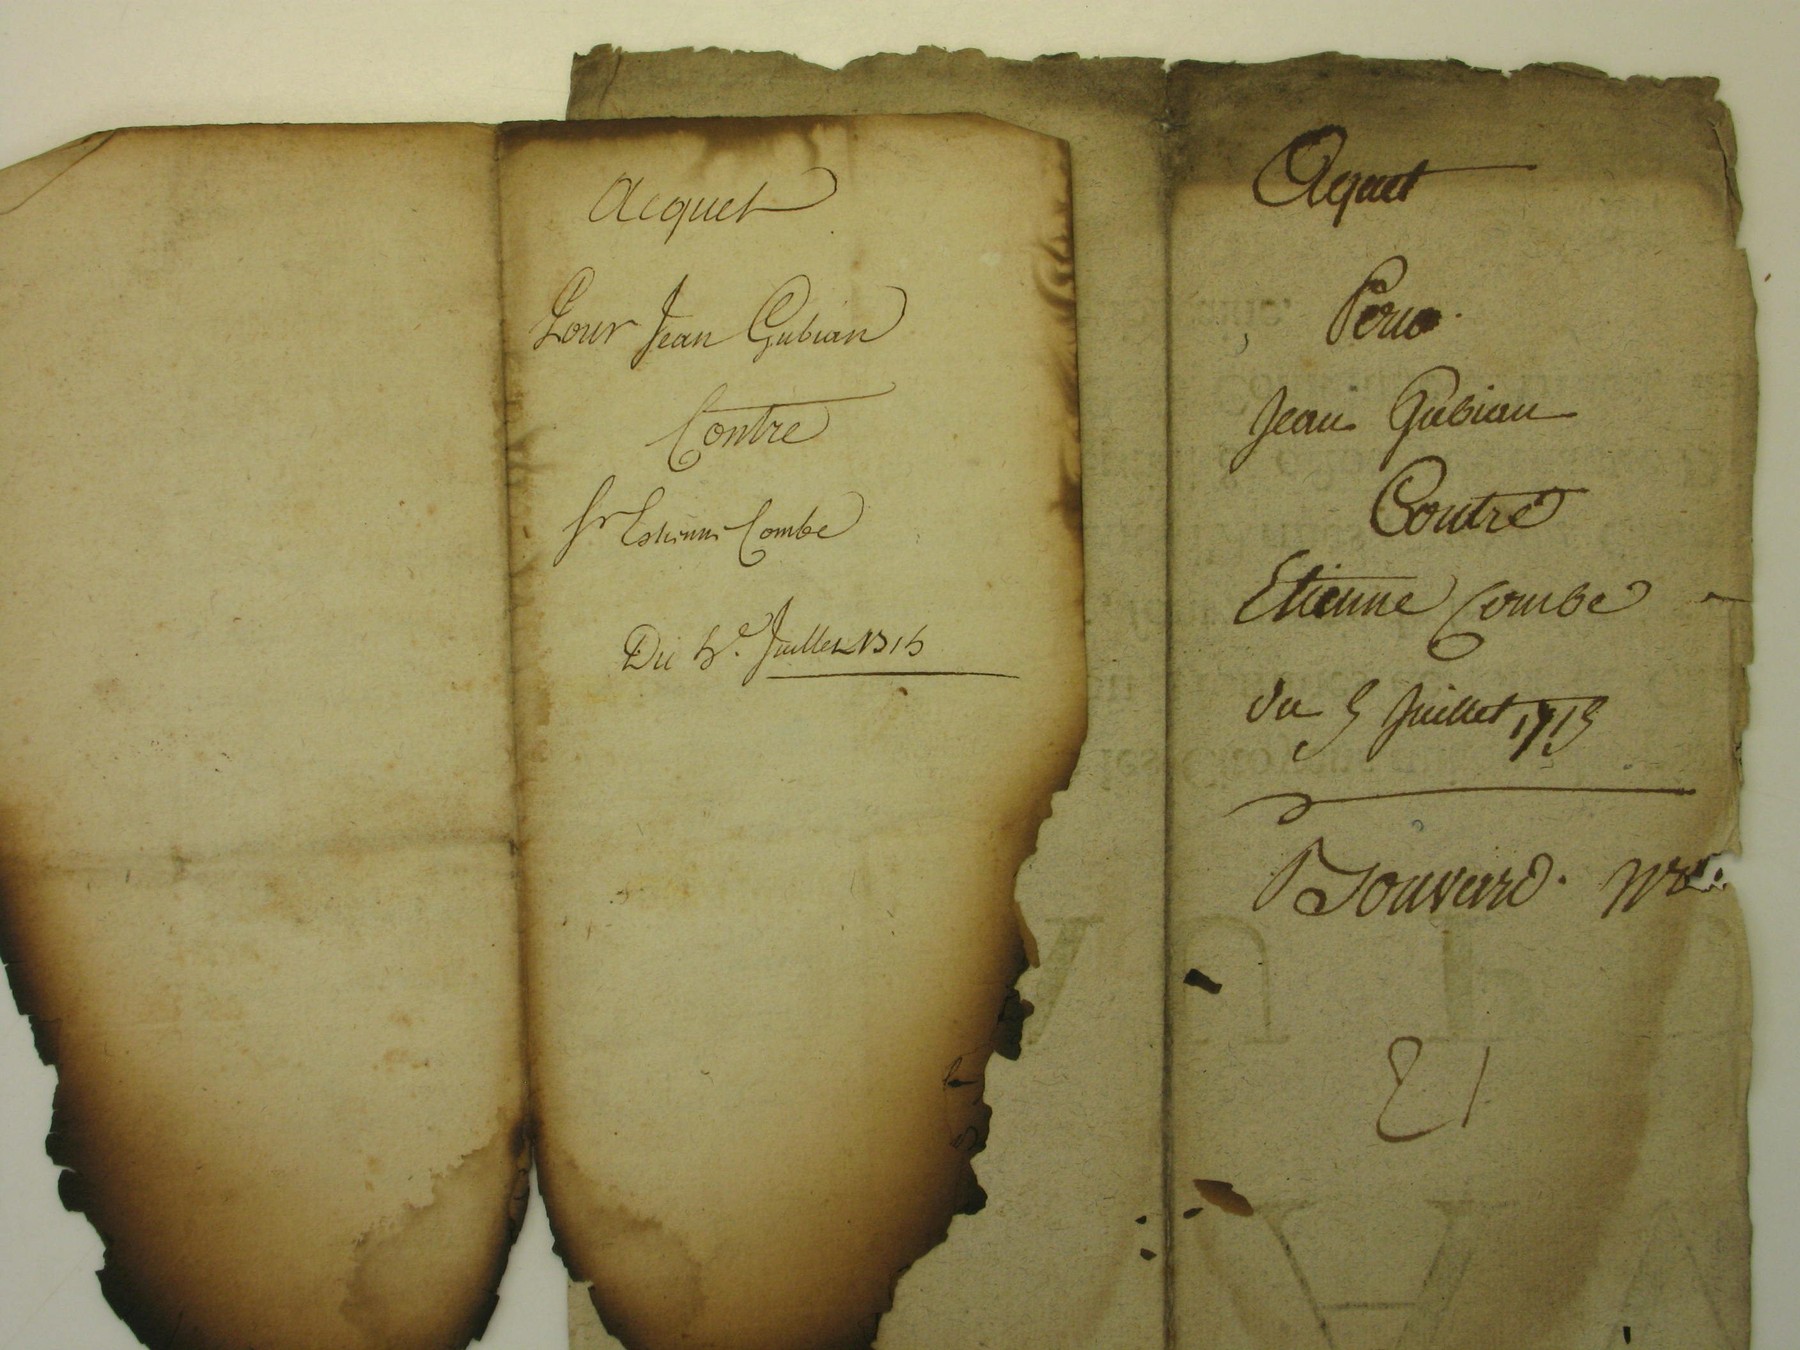 Acquet
Pour Jean Gubian
Contre
Sr Estienne Combe
Du 5e. Juillet 1715
Acquet
Pour
Jean Gubian
Contre
Etienne Combe
du 5 Juillet 1715
Bouvard
21